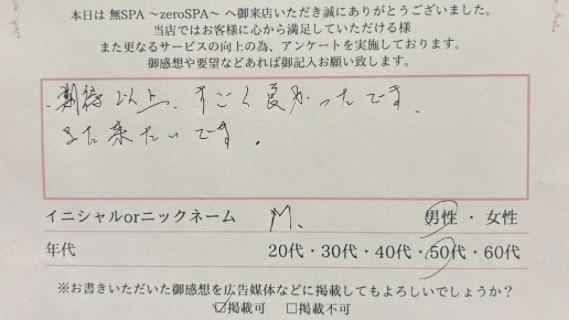 本日は 無SPA 〜zeroSPA〜 へ御来店いただき誠にありがとうございました。
当店ではお客様に心から満足していただける様
また更なるサービスの向上の為、アンケートを実施しております。
御感想や要望などあれば御記入お願い致します。
期待以上、すごく良かったです、
また来たいです。
イニシャルorニックネーム M. 男性・女性
年代 20代・30代・40代・50代・60代
※お書きいただいた御感想を広告媒体などに掲載してもよろしいでしょうか？
☑掲載可 □掲載不可